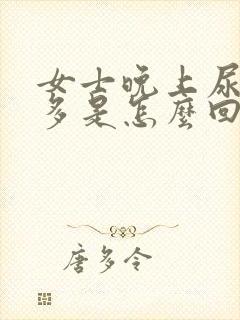 女士晚上尿
多是怎麼回
唐多令